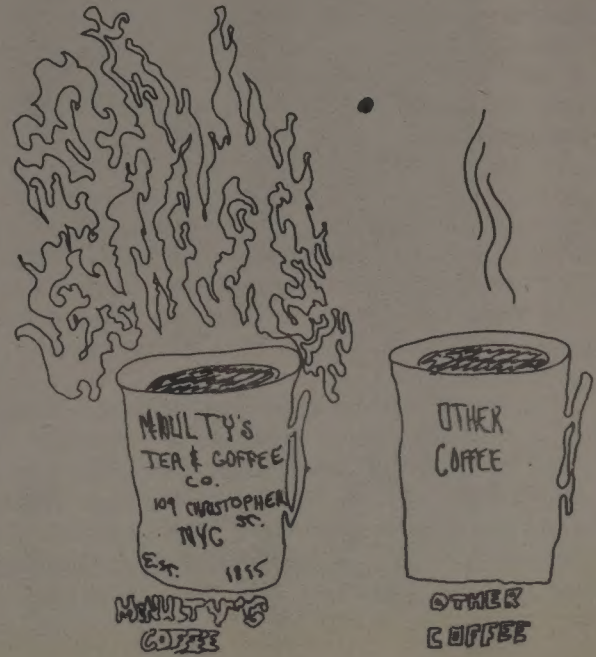 McNULTY's
TEA & COFFEE
CO.
109 CHRISTOPHER
ST.
NYC
EST. 1895
McNULTY'S
COFFEE
OTHER
COFFEE
OTHER
COFFEE